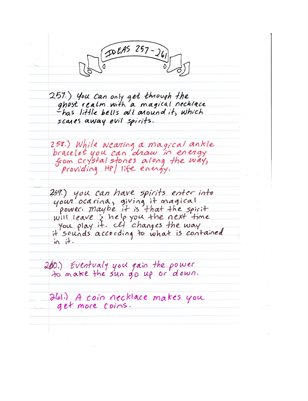 IDEAS 257-261
257.) You can only get through the
ghost realm with a magical necklace
-has little bells all around it, which
scares away evil spirits.
258.) While wearing a magical ankle
bracelet you can draw in energy
from crystal stones along the way,
providing HP/life energy.
259.) You can have spirits enter into
your ocarina, giving it magical
power. Maybe it is that the spirit
will leave & help you the next time
you play it. Cet changes the way
it sounds according to what is contained
in it.
260.) Eventualy you gain the power
to make the sun go up or down.
261.) A coin necklace makes you
get more coins.